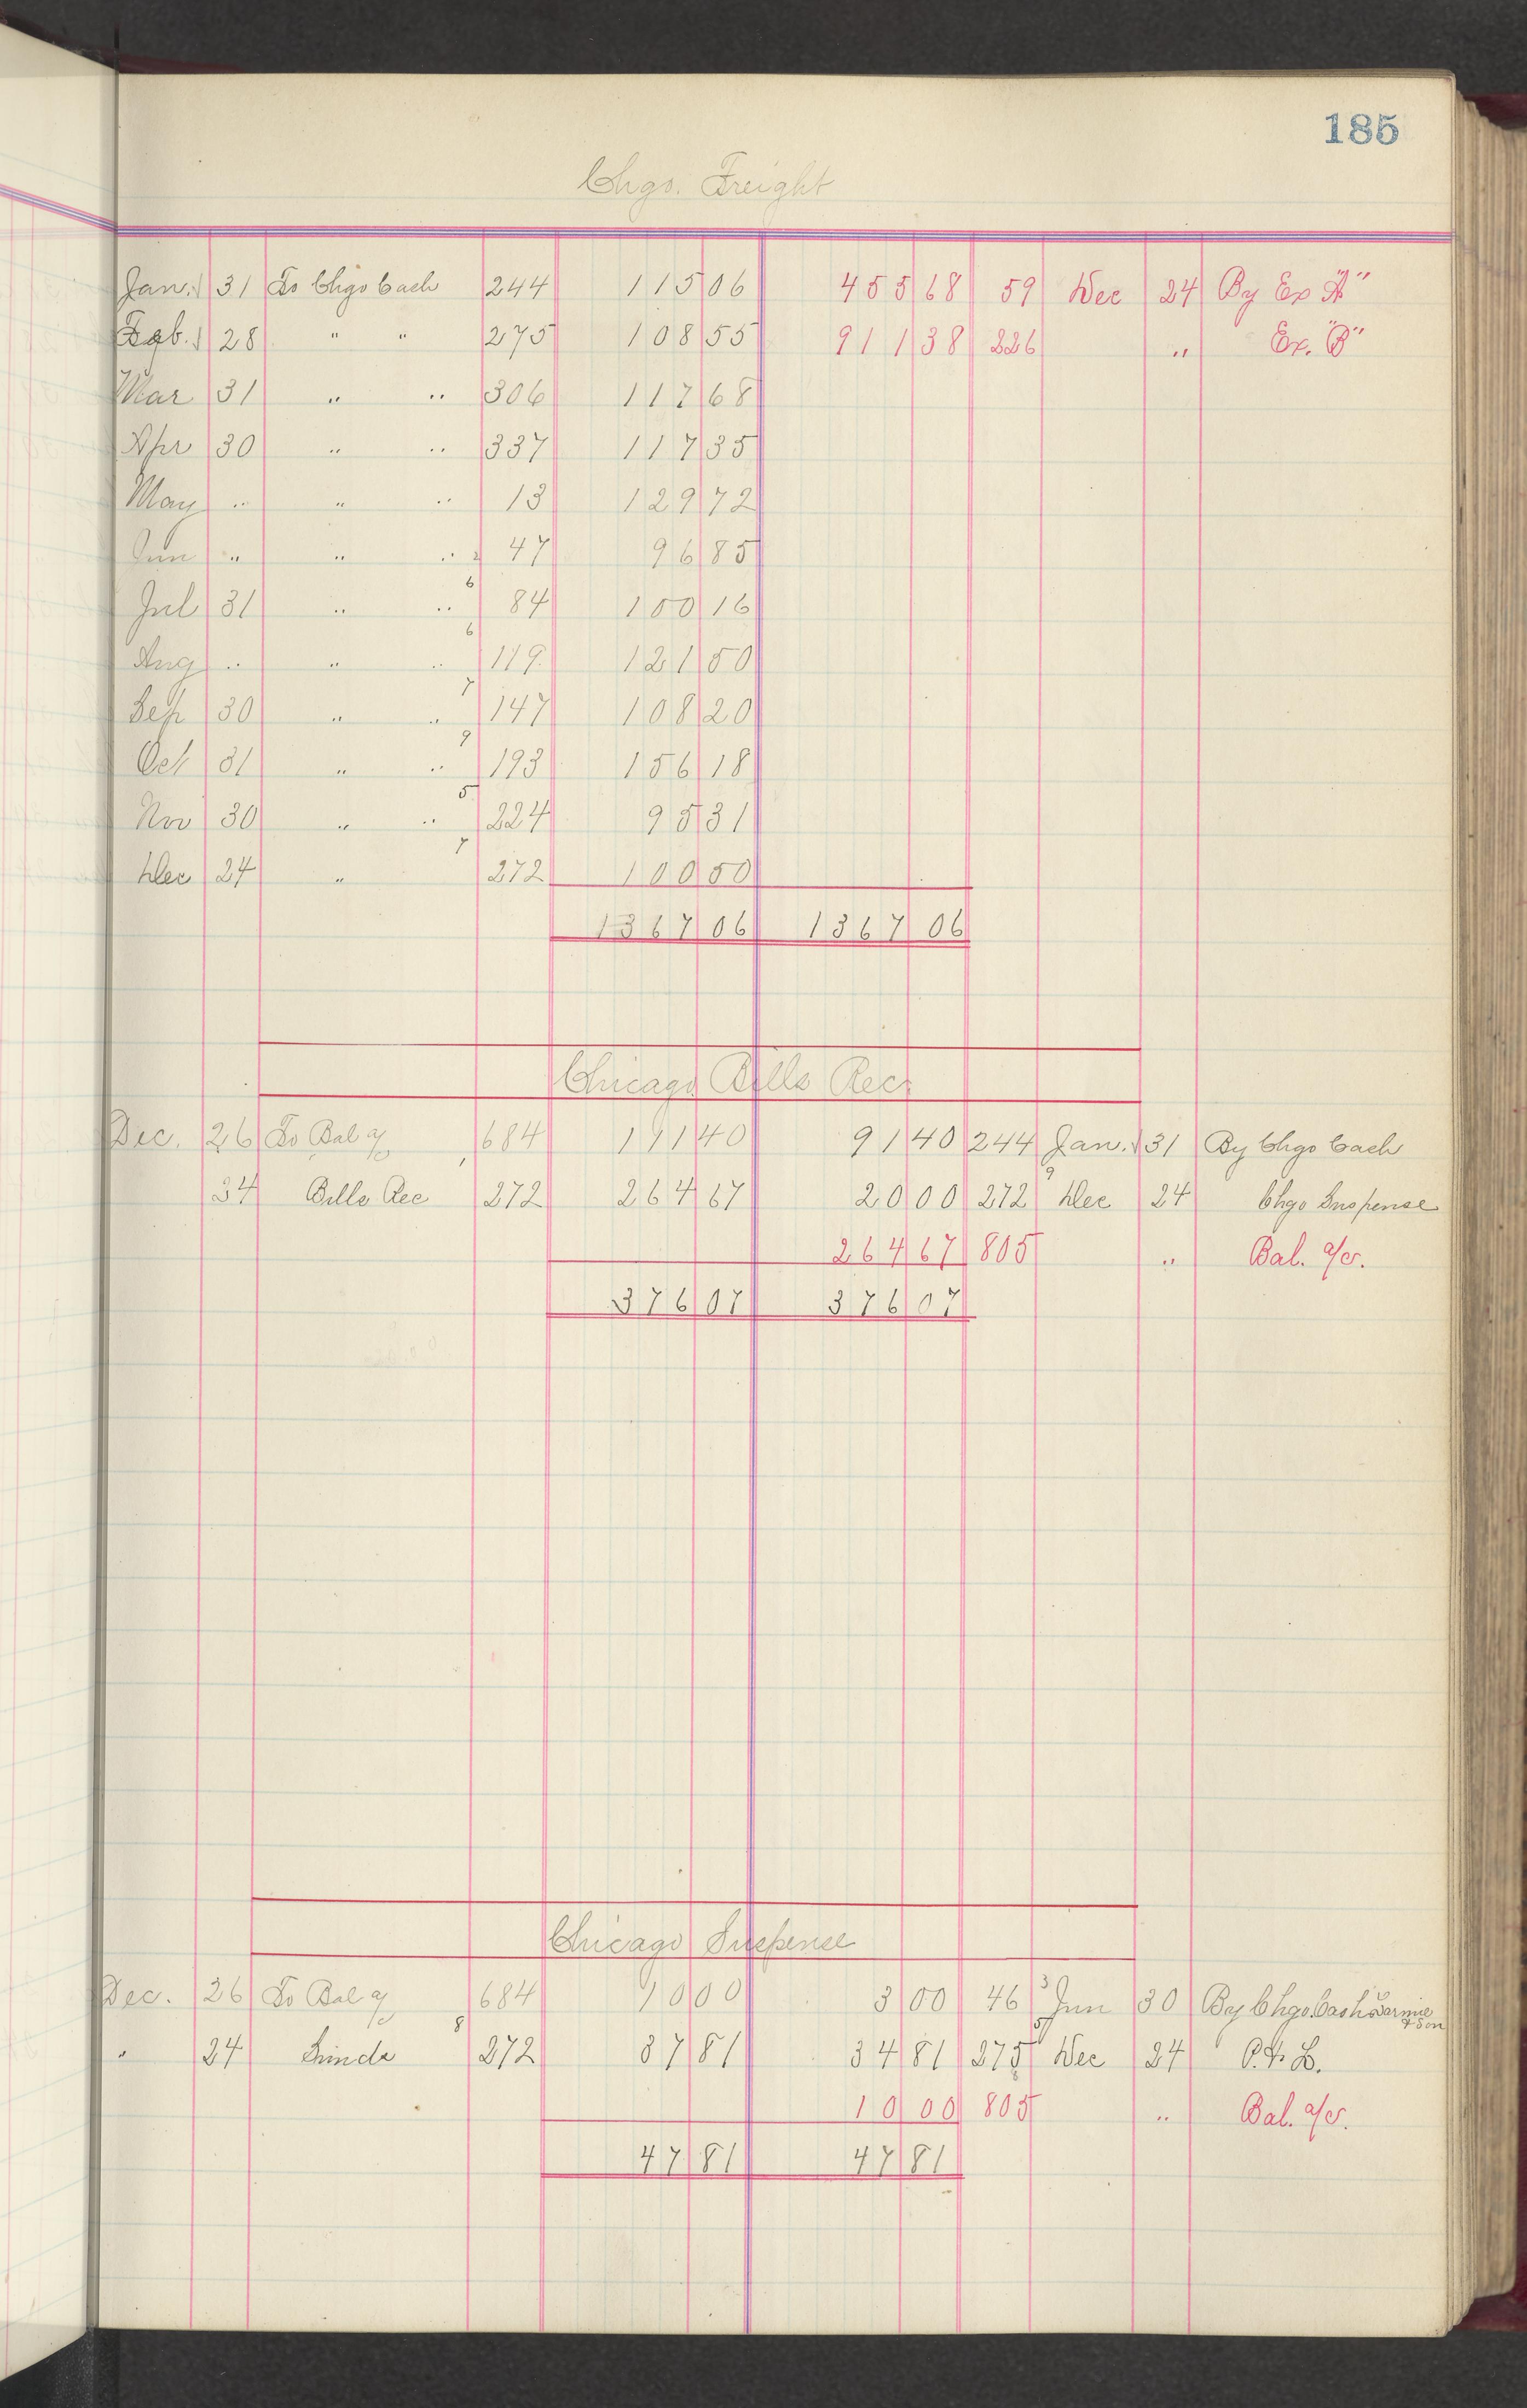 185
Chgo. Freight
Jan. 31 To Chgo Cash 244 115 06 455 68 59 Dec 24 By Ex "A"
Feb. 28 " " 275 108 55 911 38 226 " Ex. "B"
Mar 31 " " 306 117 68
Apr 30 " " 337 117 35
May " " " 13 129 72
Jun " " " 47 96 85
Jul 31 " " 6 84 100 16
Aug " " " 6 119 121 50
Sep 30 " " 7 147 108 20
Oct 31 " " 9 193 156 18
Nov 30 " " 5 224 95 31
Dec 24 " 7 272 100 50
1367 06 1367 06
Chicago Bills Rec.
Dec. 26 To Bal a/c 684 111 40 91 40 244 Jan. 31 By Chgo Cash
24 Bills Rec 272 264 67 20 00 272 9 Dec 24 Chgo Suspense
264 67 805 " Bal. a/c.
376 07 376 07
Chicago Suspense
Dec. 26 To Bal a/c 684 10 00 3 00 46 3 Jun 30 By Chgo. Cash & Son
" 24 8 272 37 81 34 81 275 5 Dec 24 P. & L.
10 00 805 " Bal. a/c.
47 81 47 81